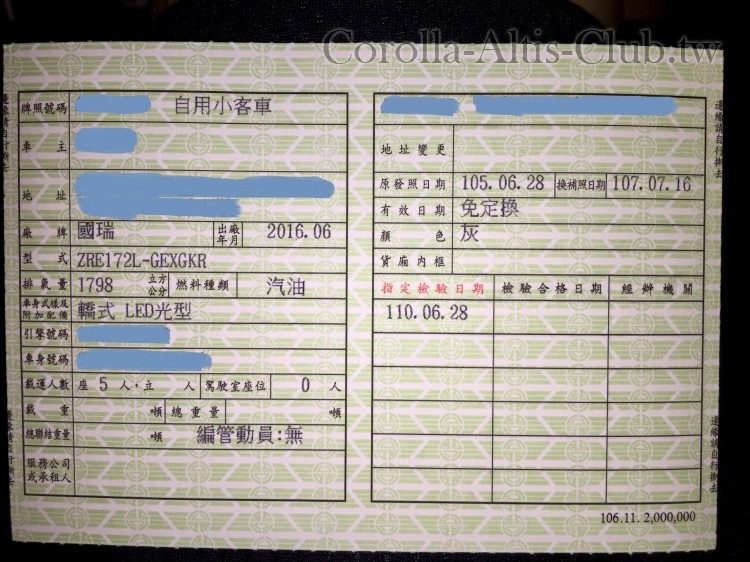 Corolla-Altis-Club.tw
邊緣請自行撕去
牌照號碼 自用小客車
車主
地址
廠牌 國瑞 出廠年月 2016.06
型式 ZRE172L-GEXGKR
排氣量 1798 立方公分 燃料種類 汽油
車身式樣及附加配備 轎式 LED光型
引擎號碼
車身號碼
載運人數 座 5 人,立 人 駕駛室座位 0 人
載重 噸 總重量 噸
總聯結重量 噸 編管動員:無
服務公司或承租人
地址變更
原發照日期 105.06.28 換補照日期 107.07.16
有效日期 免定換
顏色 灰
貨廂內框
指定檢驗日期 檢驗合格日期 經辦機關
110.06.28
邊緣請自行撕去
邊緣請自行撕去
邊緣請自行撕去
106.11. 2,000,000